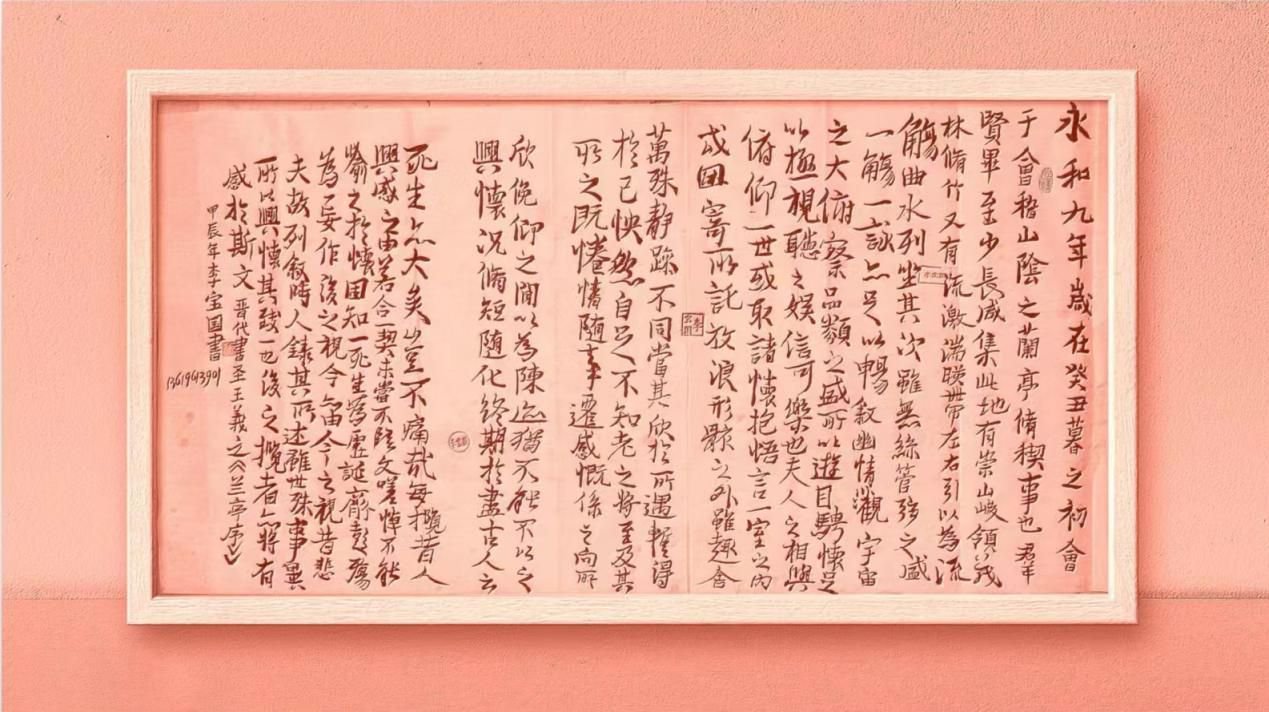 永和九年歲在癸丑暮之初會
于會稽山陰之蘭亭脩稧事也羣
賢畢至少長咸集此地有崇山峻領茂
林脩竹又有流激湍暎帶左右引以為流
觴曲水列坐其次雖無絲管弦之盛
一觴一詠亦足以暢敘幽情觀宇宙
之大俯察品類之盛所以遊目騁懷足
以極視聽之娛信可樂也夫人之相與
俯仰一世或取諸懷抱悟言一室之內
或因寄所託放浪形骸之外雖趣舍
萬殊靜躁不同當其欣於所遇暫得
於己怏然自足不知老之將至及其
所之既惓情隨事遷感慨係之向所
欣俛仰之間以為陳迹猶不能不以之
興懷況脩短隨化終期於盡古人云
死生亦大矣豈不痛哉每攬昔人
興感之由若合一契未嘗不臨文嗟悼不能
喻之於懷固知一死生為虛誕齊彭殤
為妄作後之視今亦由今之視昔悲
夫故列敘時人錄其所述雖世殊事異
所以興懷其致一也後之攬者亦將有
感於斯文 晋代書圣王羲之《兰亭序》
甲辰年李宝国書